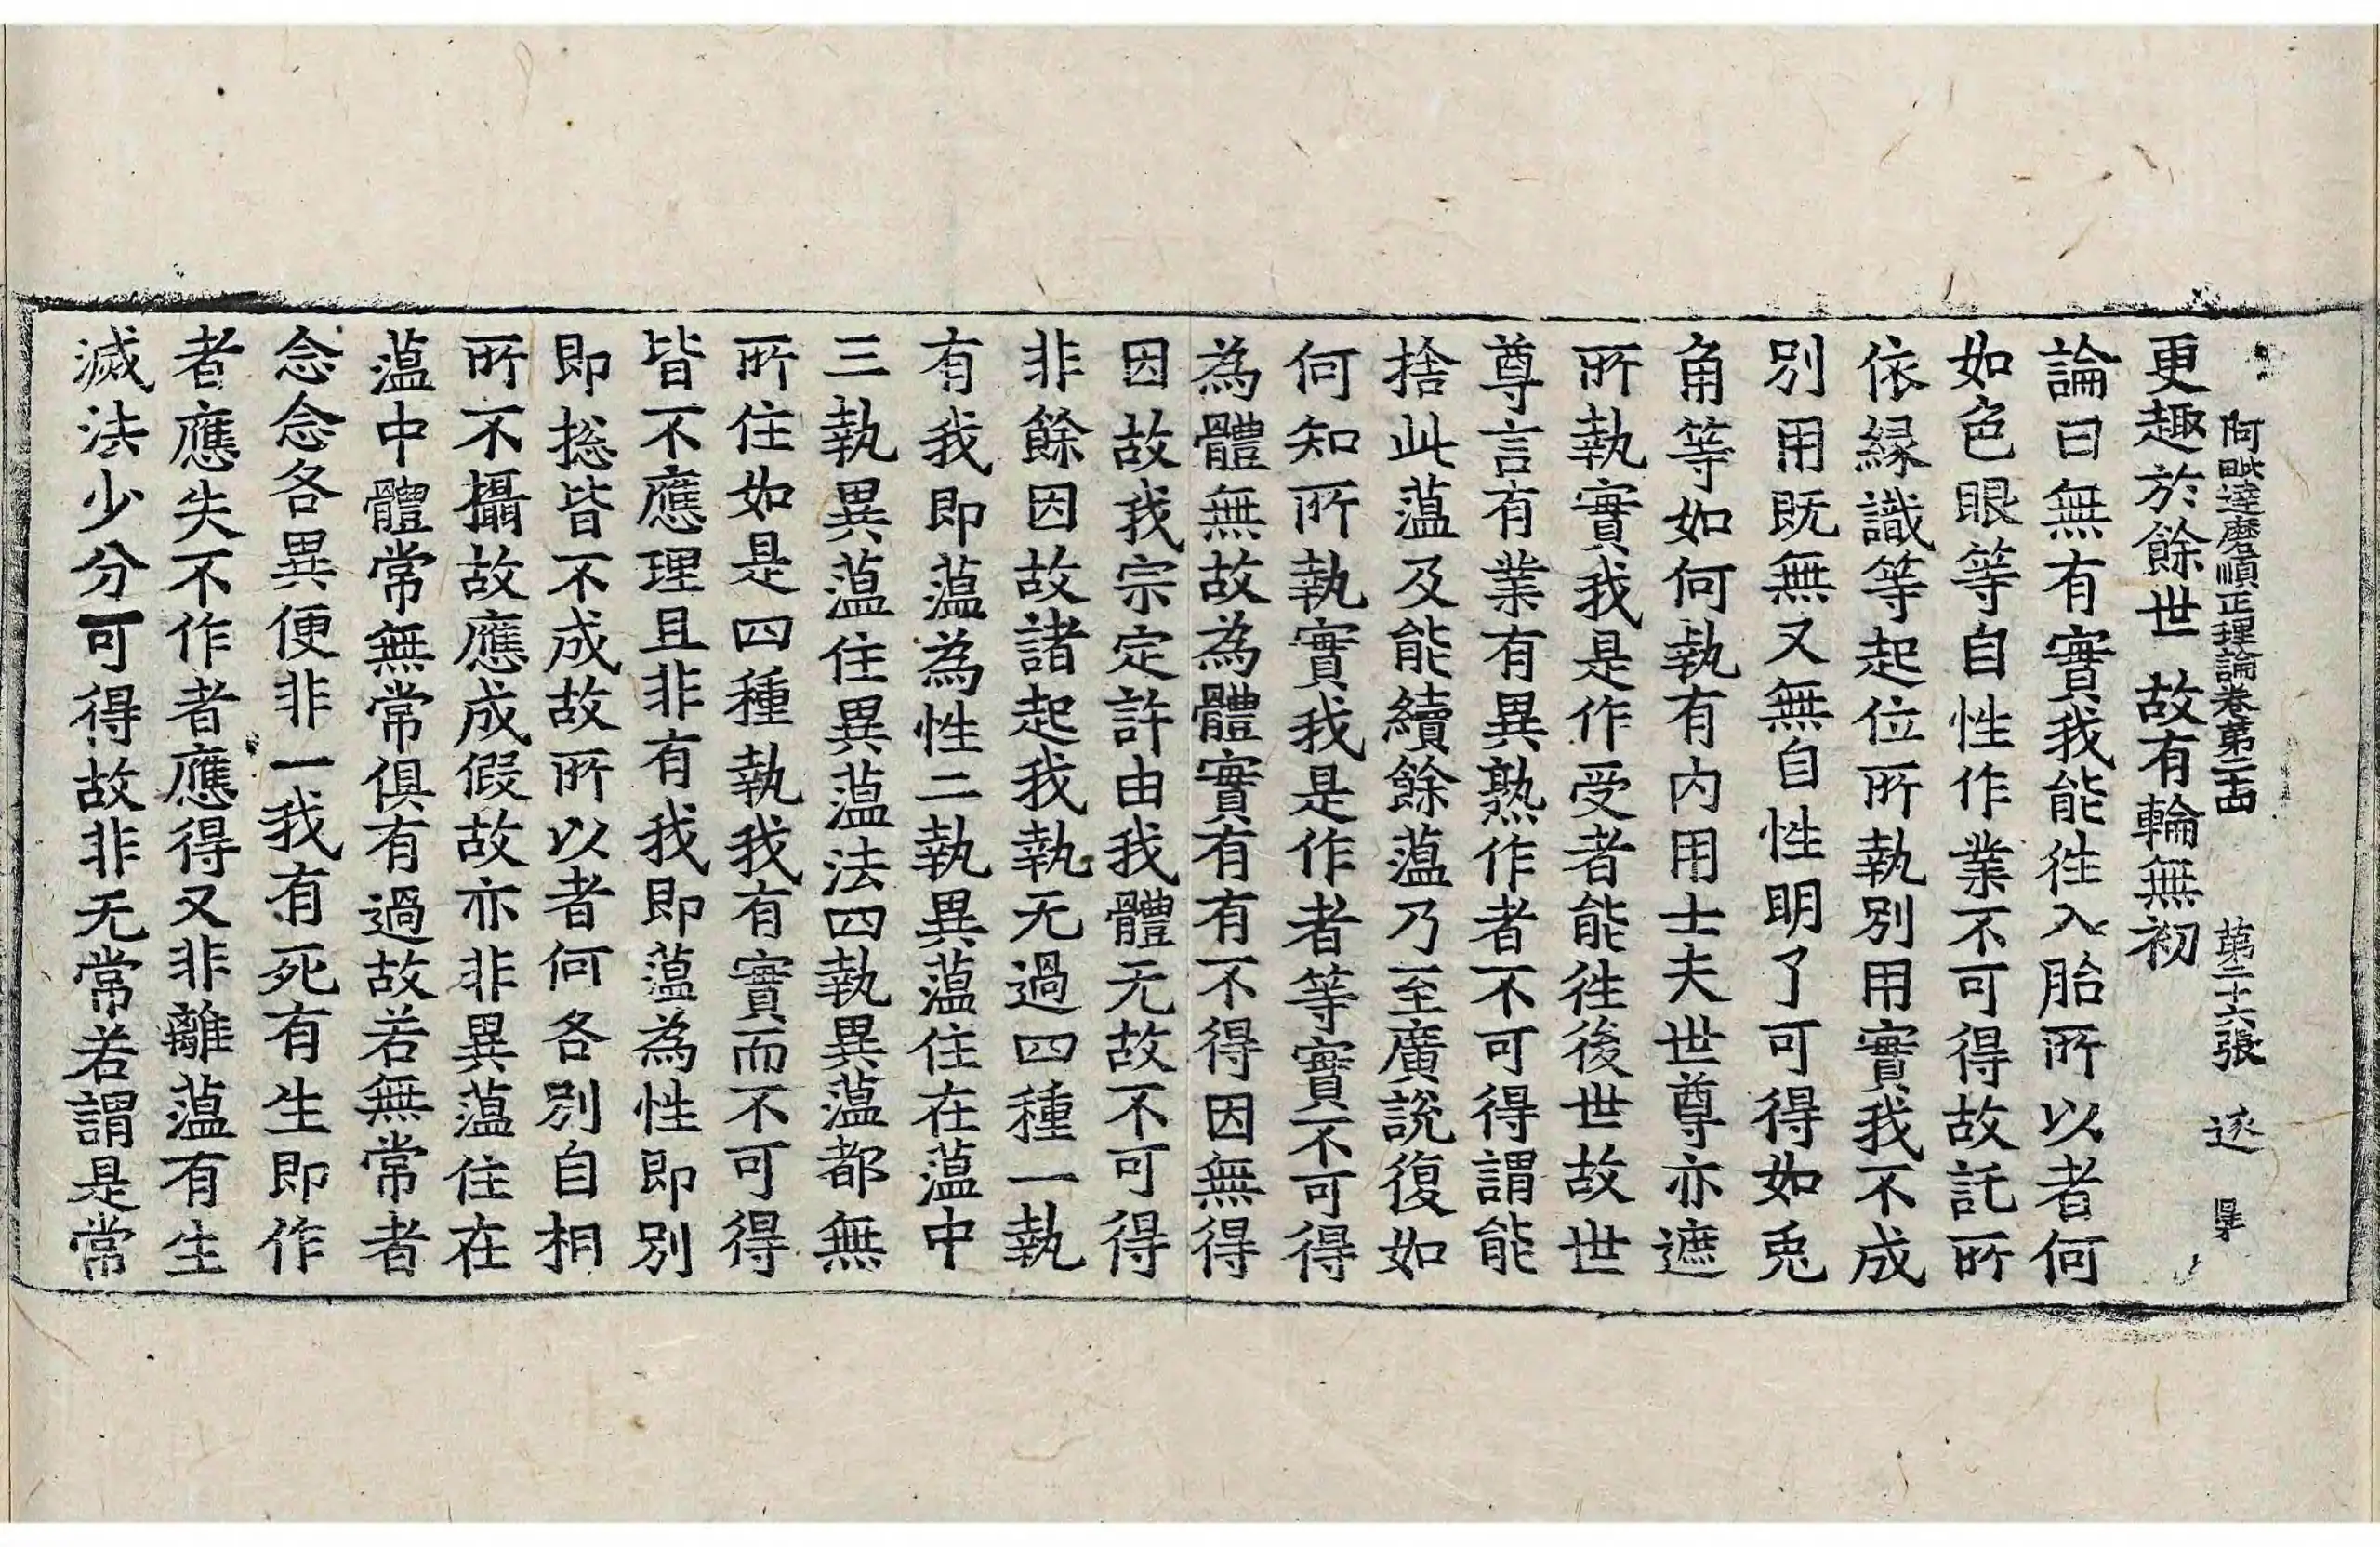 阿毗達磨順正理論卷第二十四 第二十六張 逐
更趣於餘世 故有輪無初
論曰無有實我能往入胎所以者何
如色眼等自性作業不可得故託所
依縁識等起位所執別用實我不成
別用既無又無自性明了可得如兎
角等如何執有内用士夫世尊亦遮
所執實我是作受者能往後世故世
尊言有業有異熟作者不可得謂能
捨此薀及能續餘薀乃至廣說復如
何知所執實我是作者等實不可得
為體無故為體實有有不得因無得
因故我宗定許由我體无故不可得
非餘因故諸起我執无過四種一執
有我即薀為性二執異薀住在薀中
三執異薀住異薀法四執異薀都無
所住如是四種執我有實而不可得
皆不應理且非有我即薀為性即別
即捴皆不成故所以者何各別自相
所不攝故應成假故亦非異薀住在
薀中體常無常俱有過故若無常者
念念各異便非一我有死有生即作
者應失不作者應得又非離薀有生
滅法少分可得故非无常若謂是常